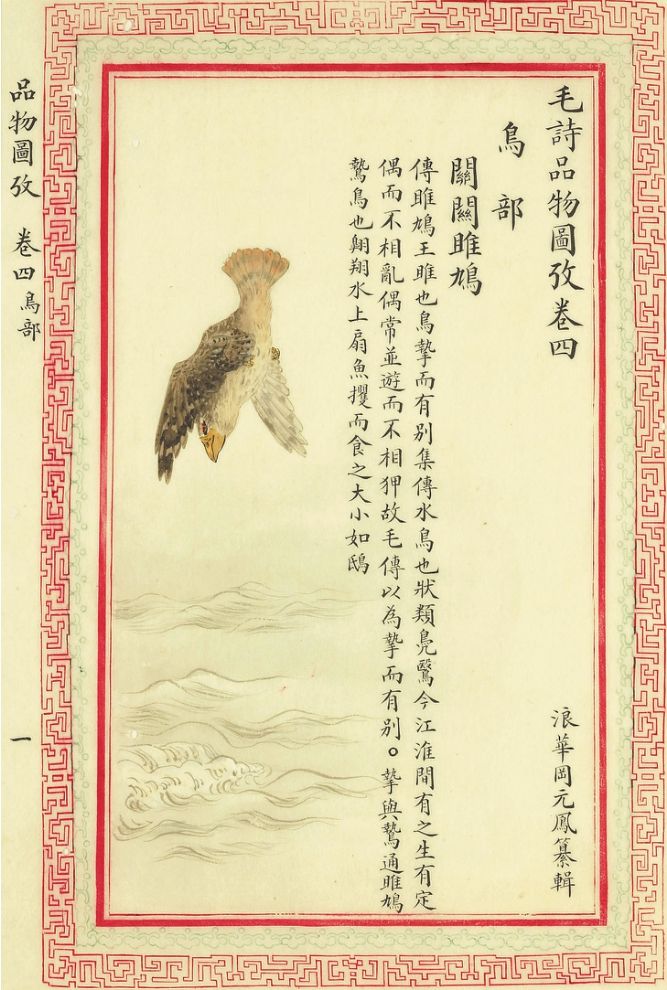 毛詩品物圖攷卷四
浪華岡元鳳纂輯
鳥部
關關雎鳩
傳雎鳩王雎也鳥摯而有別集傳水鳥也狀類鳧鷖今江淮間有之生有定
偶而不相亂偶常並遊而不相狎故毛傳以為摯而有別。摯與鷙通雎鳩
鷙鳥也翱翔水上扇魚攫而食之大小如鴟
品物圖攷 卷四鳥部
一